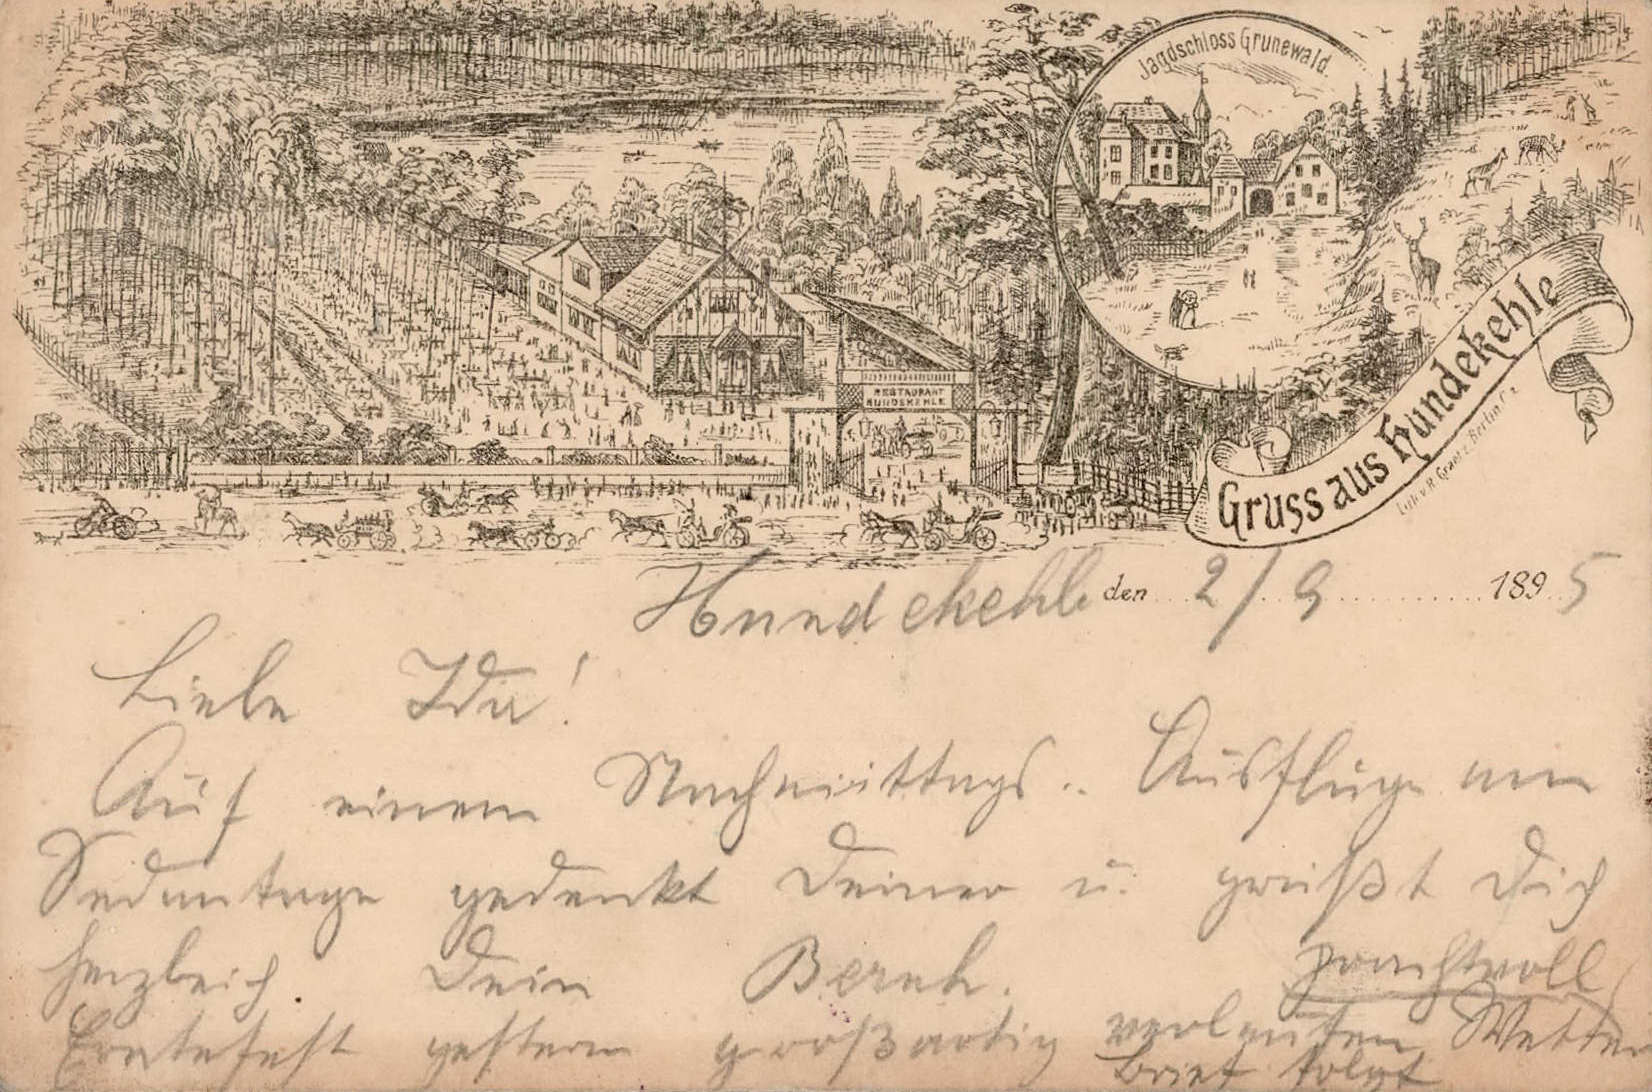 Jagdschloss Grunewald.
RESTAURANT
HUNDEKEHLE
Gruss aus Hundekehle
Lith. v. R. Grantz, Berlin, C. 2
Hundekehle den 2/9 1895
Liebe Ida!
Auf einem Nachmittags-Ausfluge am
Sedantage gedenkt Deiner u. grüßt Dich
herzlich Dein Bernh.
Erntefest gestern großartig verlaufen Wetter prachtvoll
Brief folgt